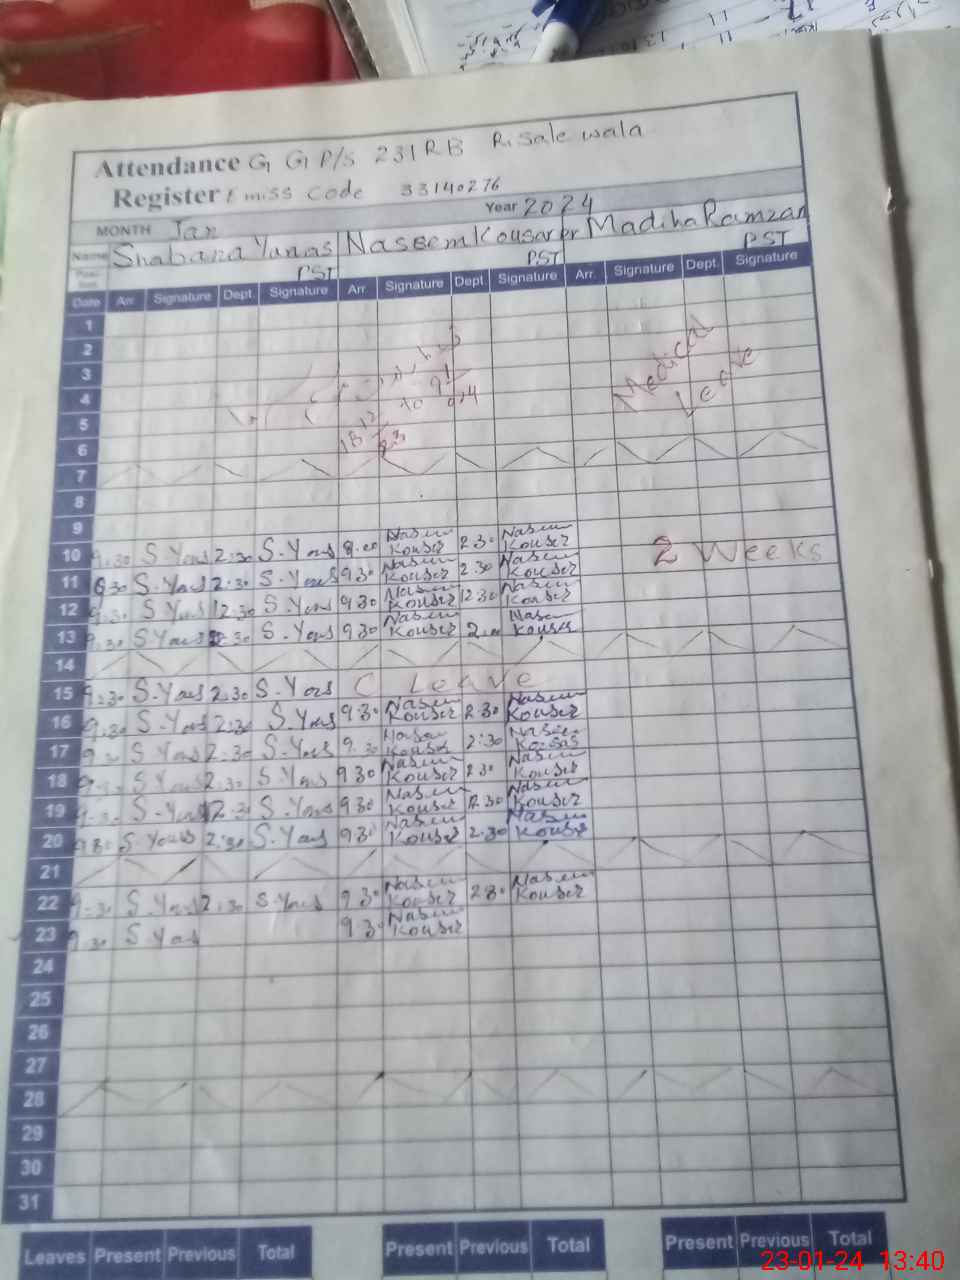 Attendance G G P/S 231 RB Risale wala
Register Emiss Code 33140276
MONTH Jan Year 2024
Name Shabana Yanas Naseem Kousar Madiha Ramzan
PST PST PST
Date Arr. Signature Dept. Signature Arr. Signature Dept. Signature Arr. Signature Dept. Signature
1
2
3 Medical
4 Leave
5
6
7
8
9
10 9.30 S Yans 2:30 S.Yans 8.00 Nasem Kouser 2.30 Nasem Kouser 2 Weeks
11 S.Yans 2:30 S.Yans 9.30 Nasem Kouser 2.30 Nasem Kouser
12 9.30 S Yans 2.30 S.Yans 9.30 Nasem Kouser 2.30 Nasem Kouser
13 9.30 S Yans 2.30 S.Yans 9.30 Nasem Kouser Nasem Kouser
14
15 9.30 S.Yans 2.30 S.Yans C Leave
16 9.30 S.Yans 2:30 S.Yans 9.30 Nasem Kouser 2.30 Nasem Kouser
17 S Yans 2:30 S.Yans 9.30 Nasem Kouser 2:30 Nasem
18 S Yans 2.30 S.Yans 9.30 Nasem Kouser 2.30 Nasem Kouser
19 S.Yans S.Yans 9.30 Nasem Kouser 2.30 Nasem Kouser
20 9.30 S.Yans 2:30 S.Yans 9.30 Nasem Kouser 2.30 Nasem Kouser
21
22 9.30 S.Yans 2.30 S.Yans 9.30 Nasem Kouser 2.30 Nasem Kouser
23 9.30 S.Yans 9.30 Nasem Kouser
24
25
26
27
28
29
30
31
Leaves Present Previous Total Present Previous Total Present Previous Total
23-01-24 13:40